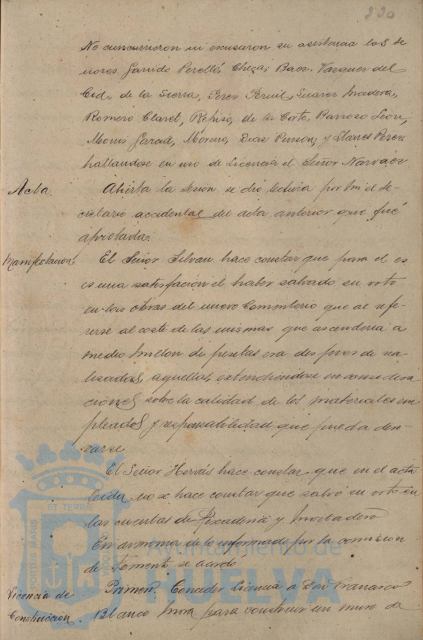 230
No concurrieron ni excusaron su asistencia los Se
ñores Garrido Perelló, Cheza, Baos, Vazquez del
Cid, de la Sierra, Perez Servil, Suarez
Romero Claret, de la Corte, Barroso Leon,
Garcia, Moreno, Diaz y Llanes Perez
hallandose en uso de licencia el Señor Narvaez
Acta. Abierta la sesion se dió lectura por mi el Se-
cretario accidental del acta anterior que fué
aprobada.
Manifestacion. El Señor Silvan hace constar que para el es
es una satisfacción el haber salvado su voto
en las obras del nuevo Cementerio que al refe-
rirse al coste de las mismas que ascenderia a
medio millon de pesetas era despues de rea-
lizadas aquellas, extendiéndose en considera
ciones sobre la calidad de los materiales em
pleados y responsabilidad que pueda deri-
varse
El Señor Hervás hace constar que en el acta
leida no se hace constar que salvó su voto en
las cuentas de y Matadero
En armonia de lo informado por la comision
de Fomento se acordó
Licencia de
Construccion. Primero Conceder licencia a Don Francisco
Blanco para construir un muro de
PORTUS MARIS ET TERRÆ
Ayuntamiento de
HUELVA